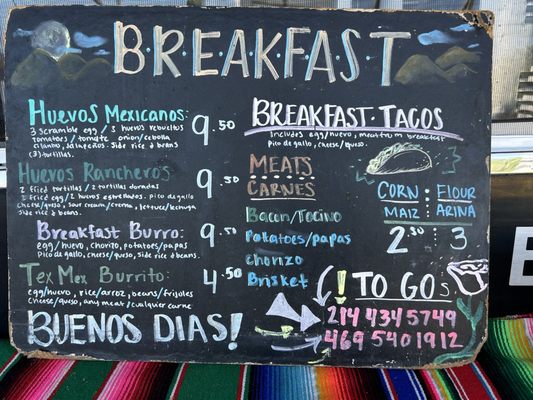 B·R·E·A·K·F·A·S·T
Huevos Mexicanos:
3 scramble egg / 3 huevos rebueltos
tomatoes / tomate onion/cebolla
cilantro, Jalapeños. Side rice & beans
(3) tortillas.
9.50
Huevos Rancheros
2 fried tortillas / 2 tortillas doradas
2 fried egg / 2 huevos estrellados. pico de gallo
cheese/queso, sour cream/crema, lettuce/lechuga
side rice & beans.
9.50
Breakfast Burro:
egg/huevo, chorizo, potatoes/papas
Pico de gallo, cheese/queso, side rice & beans.
9.50
Tex Mex Burrito:
egg/huevo, rice/arroz, beans/frijoles
cheese/queso, any meat/cualquier carne
4.50
BUENOS DIAS!
BREAKFAST·TACOS
includes egg/huevo, meat from breakfast
pico de gallo, cheese/queso.
MEATS
CARNES
Bacon/Tocino
Potatoes/papas
chorizo
Brisket
CORN FLOUR
MAIZ ARINA
2.50 3
! TO GOs
214 434 5749
469 540 1912